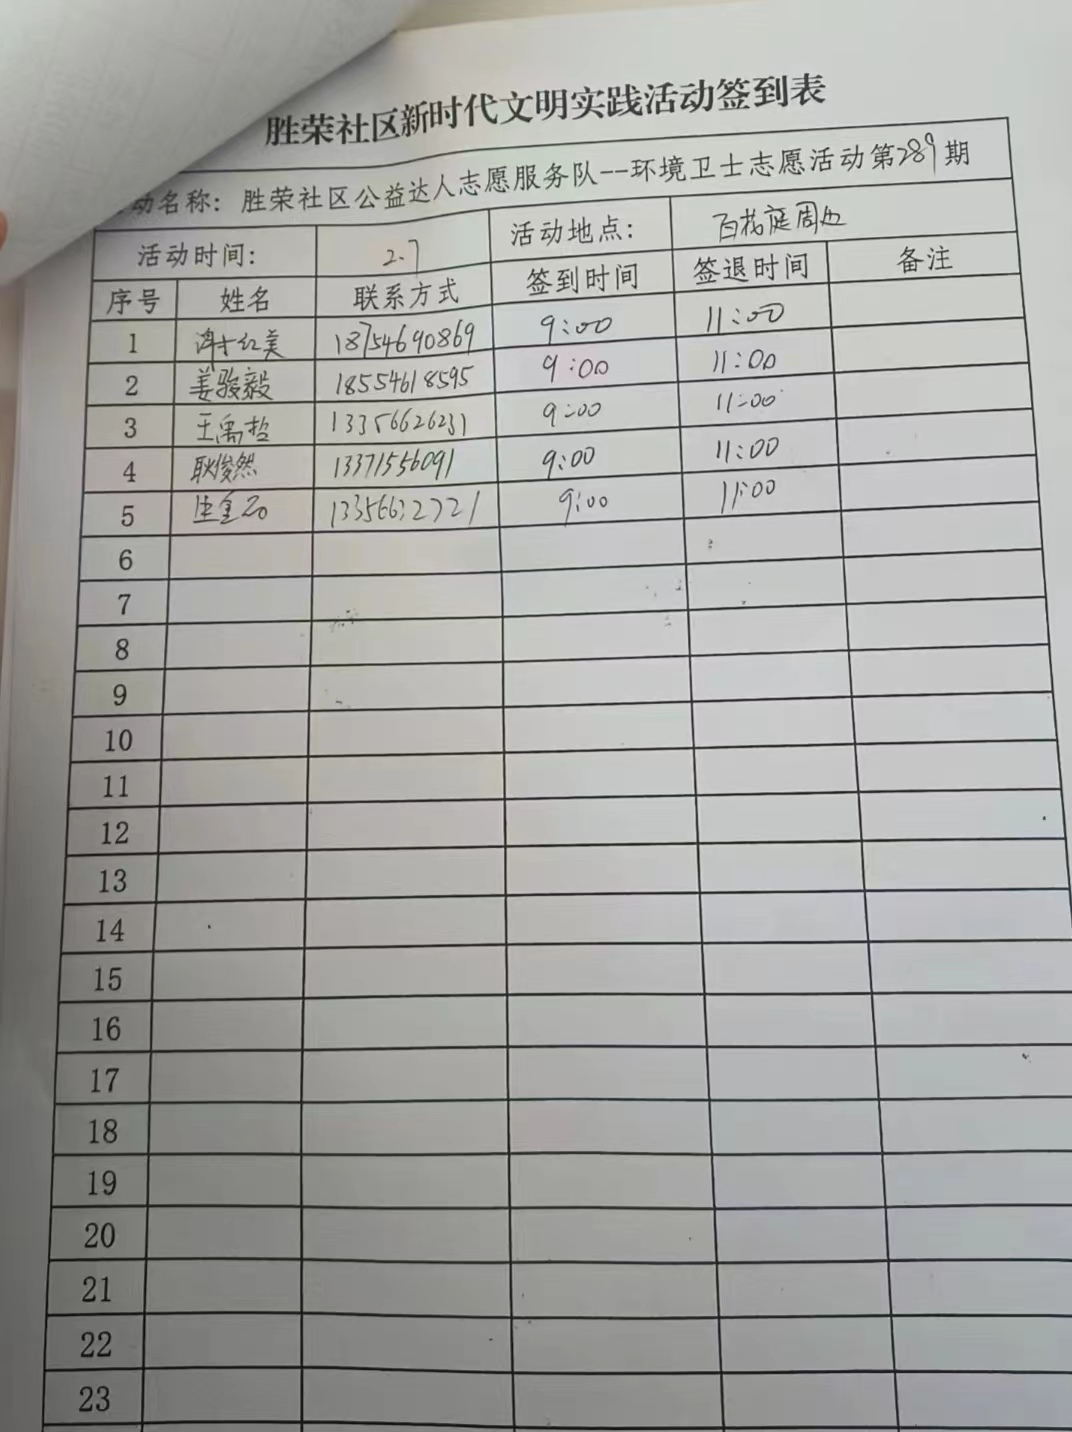 胜荣社区新时代文明实践活动签到表
动名称：胜荣社区公益达人志愿服务队--环境卫士志愿活动第289期
活动时间： 2.7 活动地点： 百花庭周边
序号 姓名 联系方式 签到时间 签退时间 备注
1 红美 18754690869 9:00 11:00
2 姜骏毅 18554618595 9:00 11:00
3 王禹哲 13356626231 9:00 11:00
4 耿俊然 13371556091 9:00 11:00
5 9:00 11:00
6
7
8
9
10
11
12
13
14
15
16
17
18
19
20
21
22
23